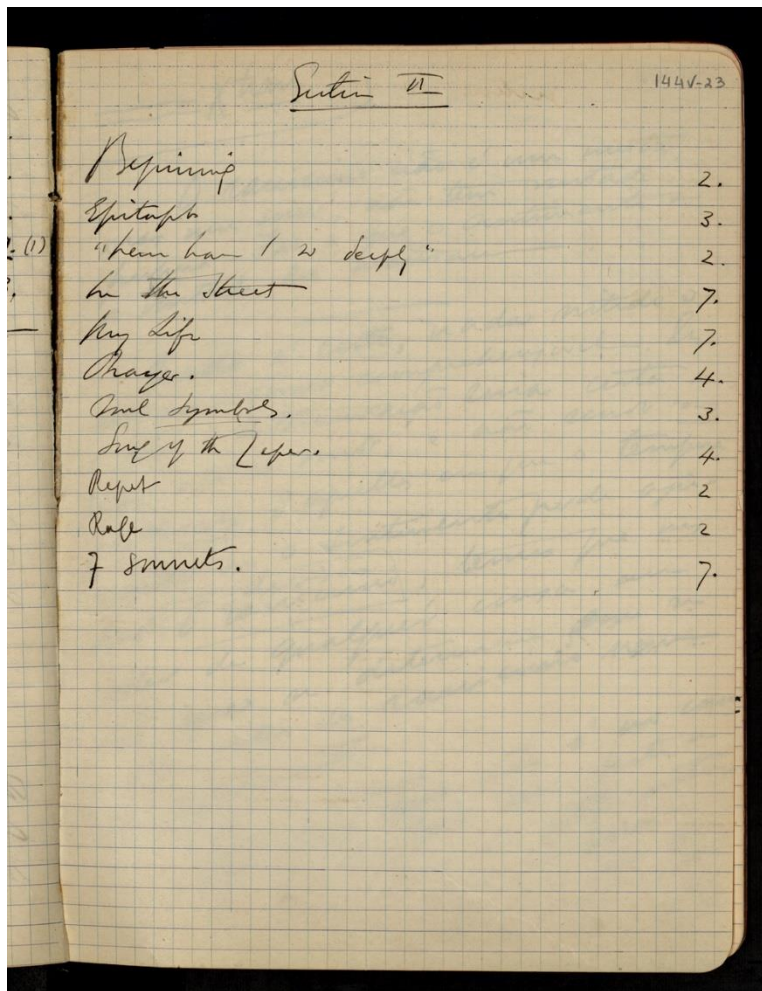 144V-23
Section II
Beginning 2.
Epitaph 3.
(1)
" have I so deeply" 2.
In the Street 7.
My Life 7.
Prayer. 4.
Soul Symbols. 3.
Song of the Leper. 4.
Regret 2
Rage 2
7 sonnets. 7.